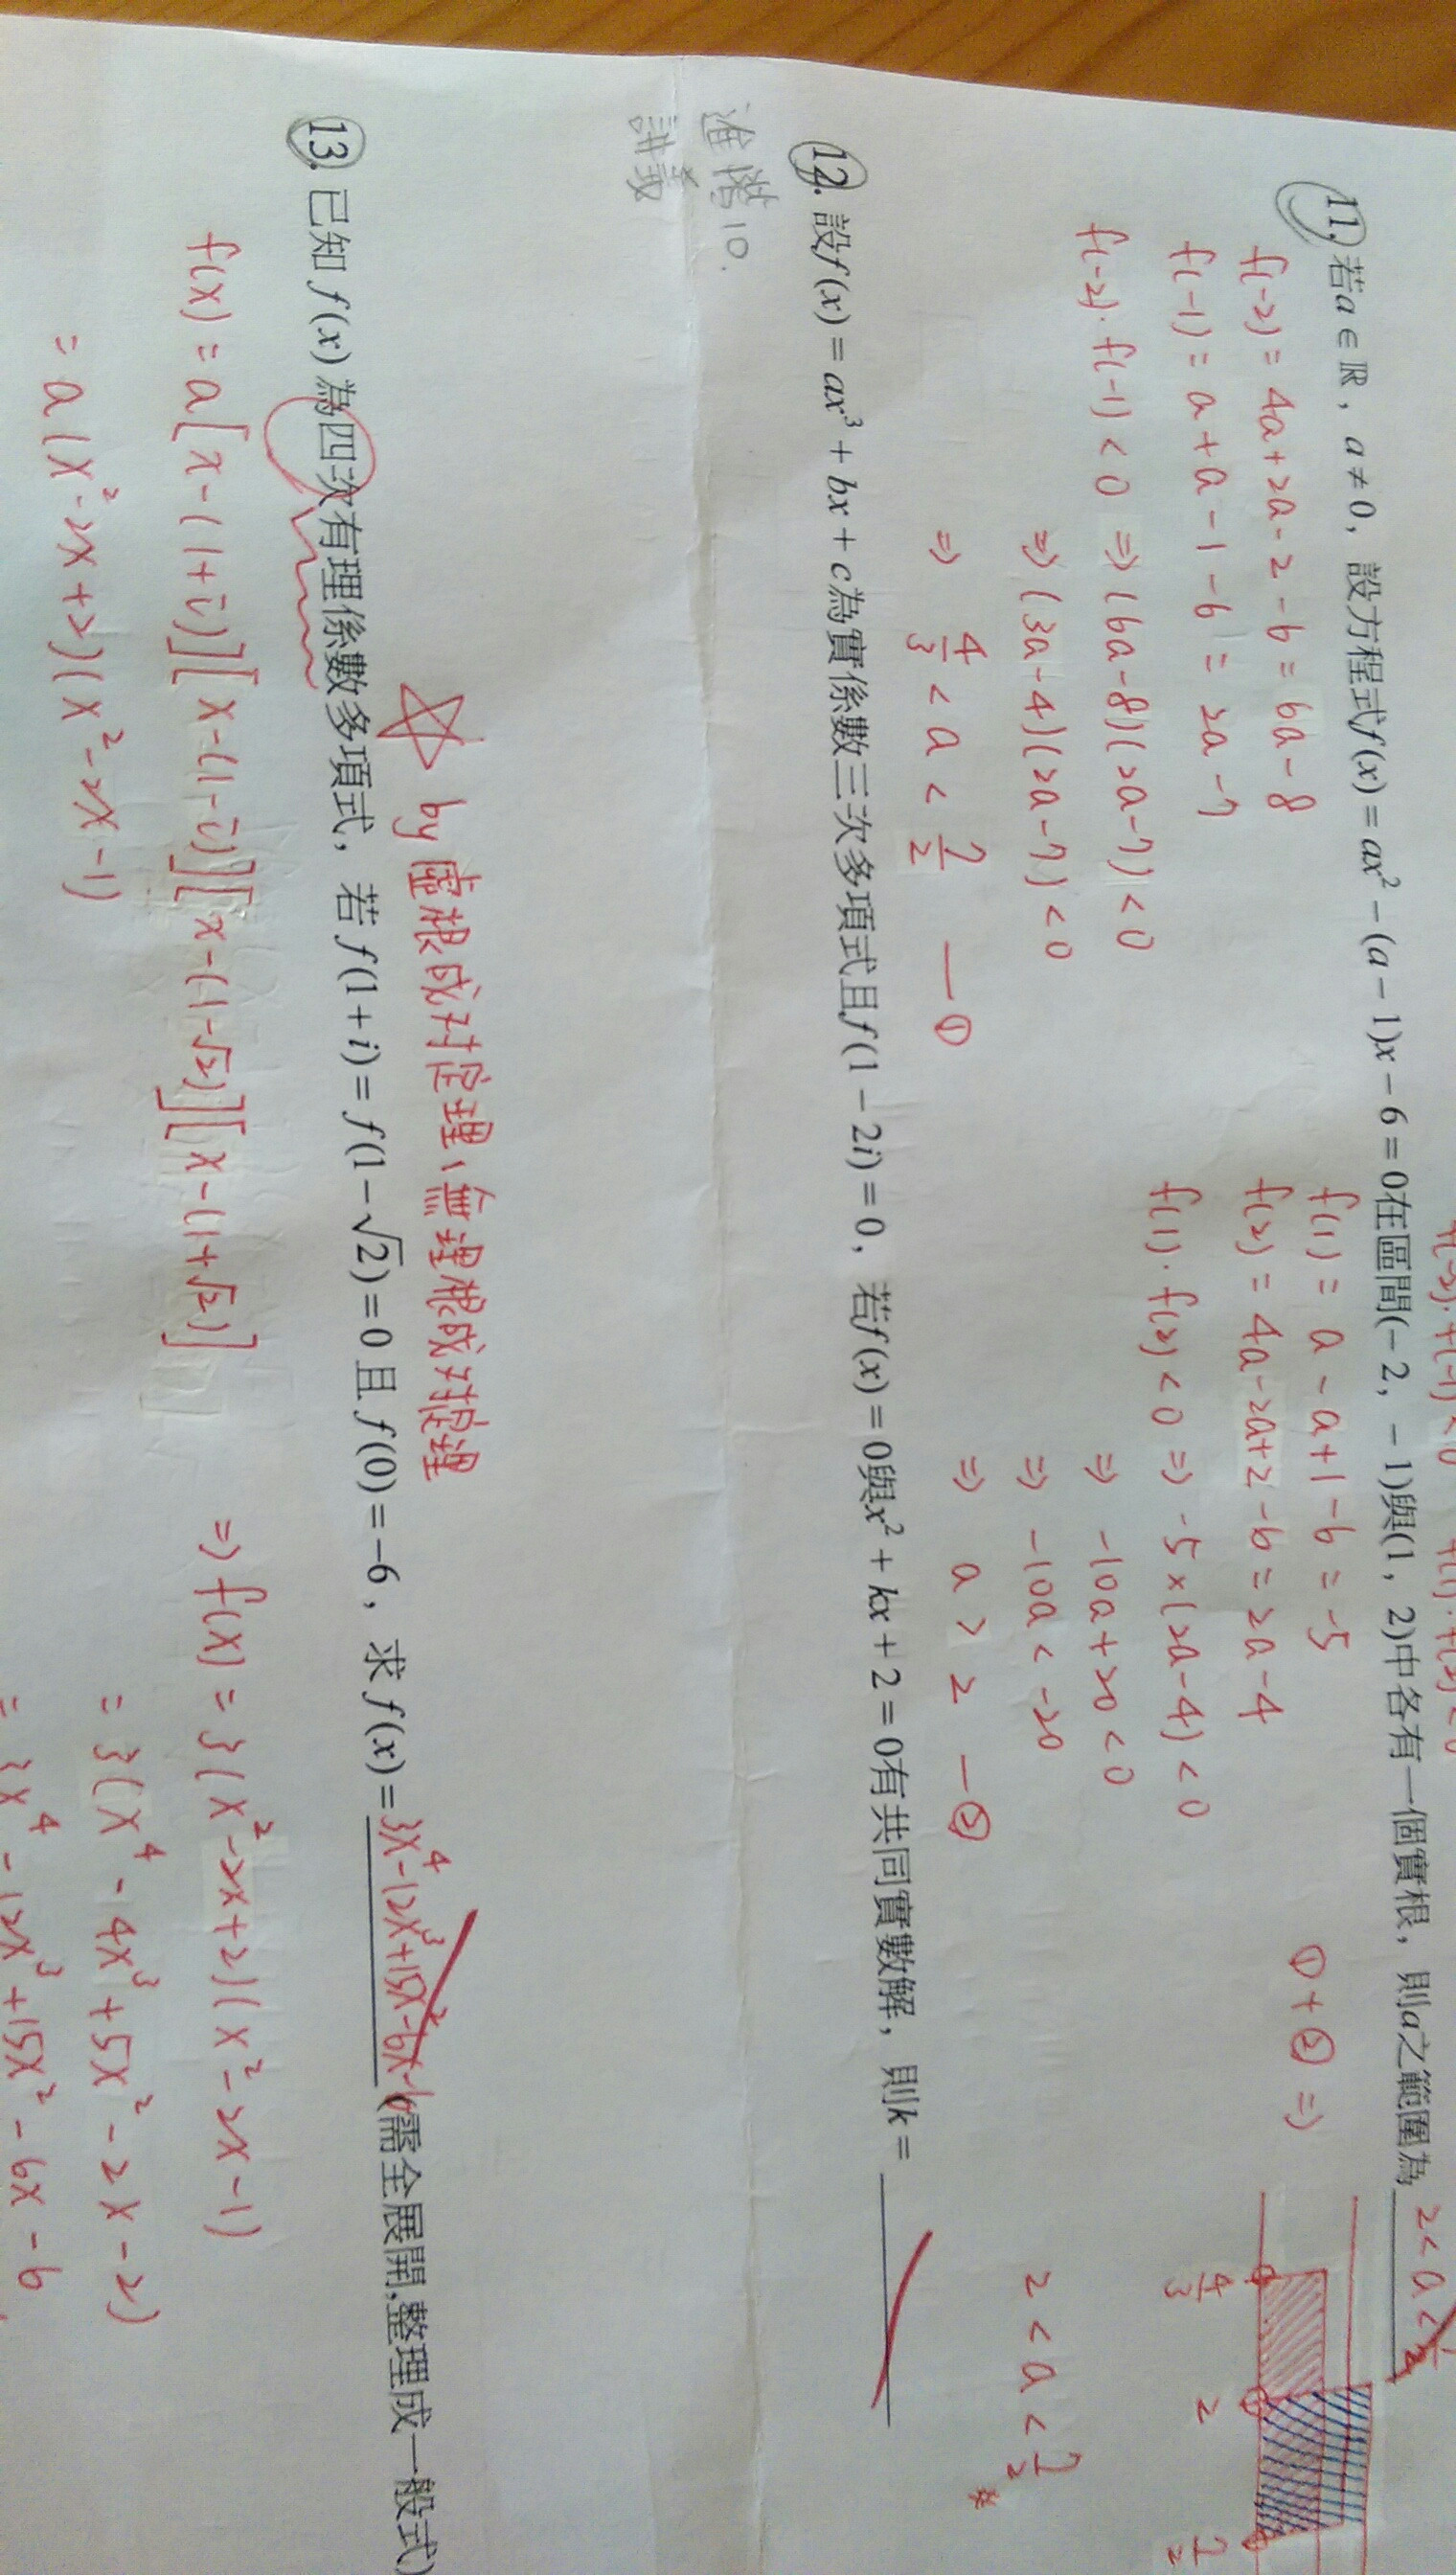 f(-2)·f(-1)<0 f(1)·f(2)<0
11. 若a∈ℝ，a≠0，設方程式f(x)=ax²-(a-1)x-6=0在區間(-2，-1)與(1，2)中各有一個實根，則a之範圍為 2<a<7/2
f(-2)=4a+2a-2-6=6a-8
f(-1)=a+a-1-6=2a-7
f(-2)·f(-1)<0 ⇒(6a-8)(2a-7)<0
⇒(3a-4)(2a-7)<0
⇒ 4/3<a<7/2 —①
f(1)=a-a+1-6=-5
f(2)=4a-2a+2-6=2a-4
f(1)·f(2)<0 ⇒ -5×(2a-4)<0
⇒ -10a+20<0
⇒ -10a<-20
⇒ a>2 —②
①+②⇒
4/3 2 7/2
2<a<7/2 *
12. 設f(x)=ax³+bx+c為實係數三次多項式且f(1-2i)=0，若f(x)=0與x²+kx+2=0有共同實數解，則k=
進階10.
講義
☆ by 虛根成對定理、無理根成對定理
13. 已知f(x)為四次有理係數多項式，若f(1+i)=f(1-√2)=0且f(0)=-6，求f(x)=3x⁴-12x³+15x²-6x-6 (需全展開,整理成一般式)
f(x)=a[x-(1+i)][x-(1-i)][x-(1-√2)][x-(1+√2)]
=a(x²-2x+2)(x²-2x-1)
⇒f(x)=3(x²-2x+2)(x²-2x-1)
=3(x⁴-4x³+5x²-2x-2)
=3x⁴-12x³+15x²-6x-6